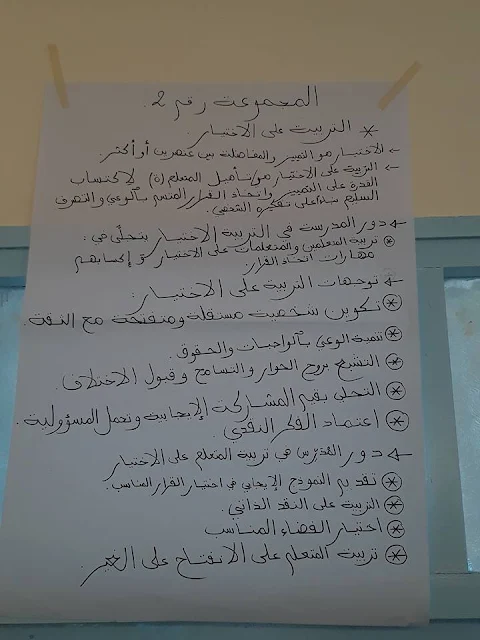 المجموعة رقم 2.
* التربية على الاختيار.
← الاختيار هو التمييز والمفاضلة بين عنصرين أو أكثر.
← التربية على الاختيار هو تأهيل المتعلم (ة) لاكتساب
القدرة على التمييز واتخاذ القرار المتسم بالوعي والتصرف
السليم بناء على تفكيره الشخصي.
← دور المدرسة في التربية الاختيار يتجلى في:
* تربية المتعلمين والمتعلمات على الاختيار و إكسابهم
مهارات اتخاذ القرار
← توجهات التربية على الاختيار:
* تكوين شخصية مستقلة ومتفتحة مع الثقة.
* تنمية الوعي بالواجبات والحقوق.
* التشبع بروح الحوار والتسامح وقبول الاختلاف
* التحلي بقيم المشاركة الإيجابية وتحمل المسؤولية.
* اعتماد الفكر النقدي.
← دور المدرس في تربية المتعلم على الاختيار
* تقديم النموذج الإيجابي في اختيار القرار المناسب.
* التربية على النقد الذاتي.
* اختيار الفضاء المناسب
* تربية المتعلم على الانفتاح على الغير.